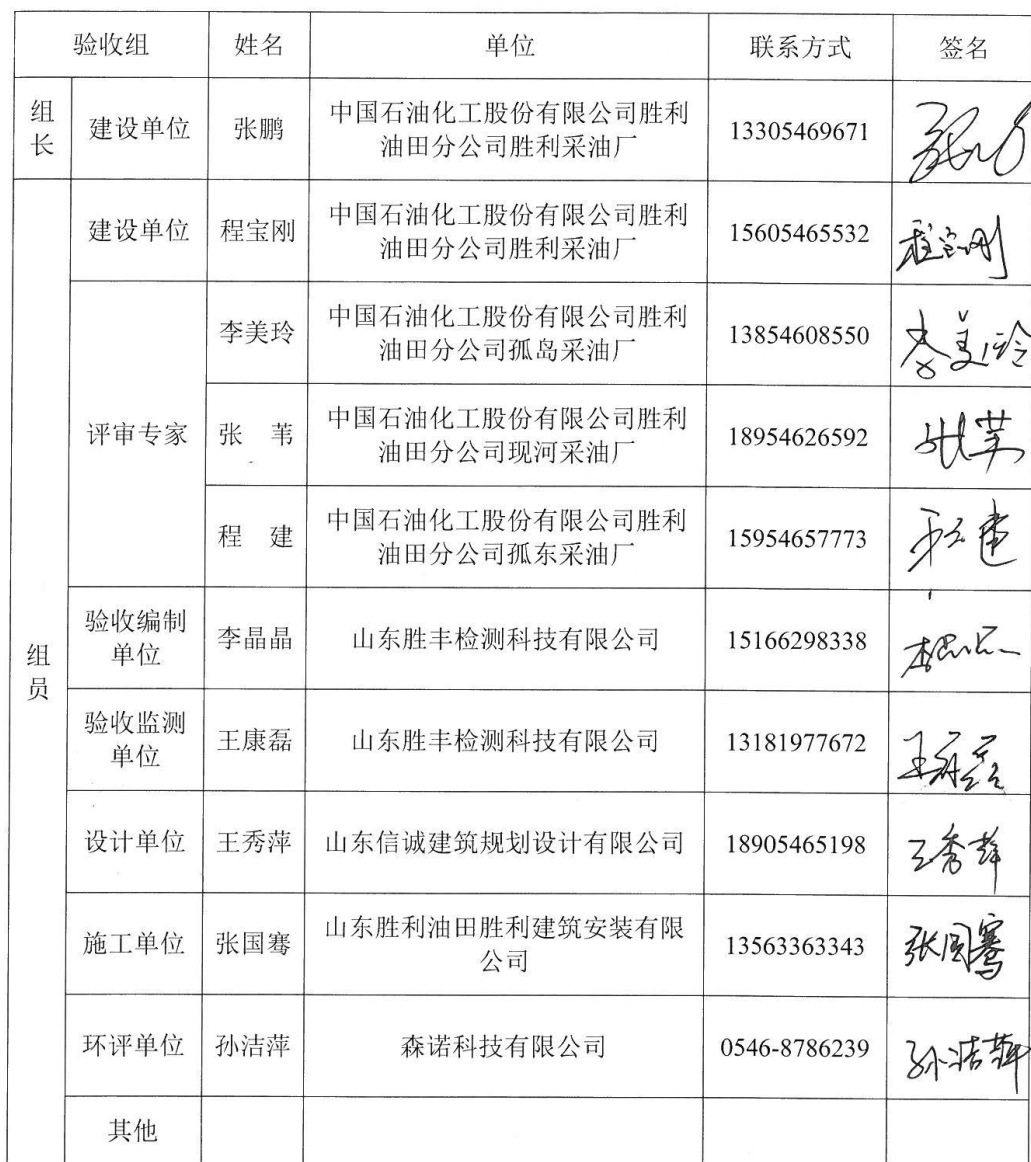 验收组 姓名 单位 联系方式 签名
组长 建设单位 张鹏 中国石油化工股份有限公司胜利
油田分公司胜利采油厂 13305469671
组员
建设单位 程宝刚 中国石油化工股份有限公司胜利
油田分公司胜利采油厂 15605465532 程宝刚
评审专家
李美玲 中国石油化工股份有限公司胜利
油田分公司孤岛采油厂 13854608550 李美玲
张 苇 中国石油化工股份有限公司胜利
油田分公司现河采油厂 18954626592 张苇
程 建 中国石油化工股份有限公司胜利
油田分公司孤东采油厂 15954657773 程建
验收编制
单位 李晶晶 山东胜丰检测科技有限公司 15166298338 李晶晶
验收监测
单位 王康磊 山东胜丰检测科技有限公司 13181977672 王康磊
设计单位 王秀萍 山东信诚建筑规划设计有限公司 18905465198 王秀萍
施工单位 张国骞 山东胜利油田胜利建筑安装有限
公司 13563363343 张国骞
环评单位 孙洁萍 森诺科技有限公司 0546-8786239 孙洁萍
其他